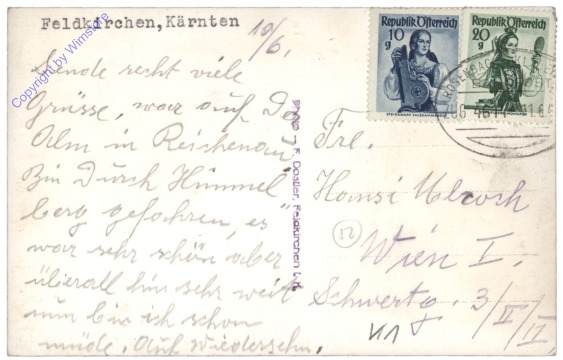 Feldkirchen, Kärnten
10/6.
Copyright by Wimstore
Sende recht viele
Grüsse, war auf Da
Alm in Reichenau
Bin Durch Himmel
berg gefahren, es
war sehr schön, aber
überall hin sehr weit
nun bin ich schon
müde. Auf Wiedersehn.
Dostler, Feldkirchen i. K.
Republik Österreich
10 g
Republik Österreich
20 g
Frl.
Hansi
52
Wien I.
Schwertg. 3/II/17